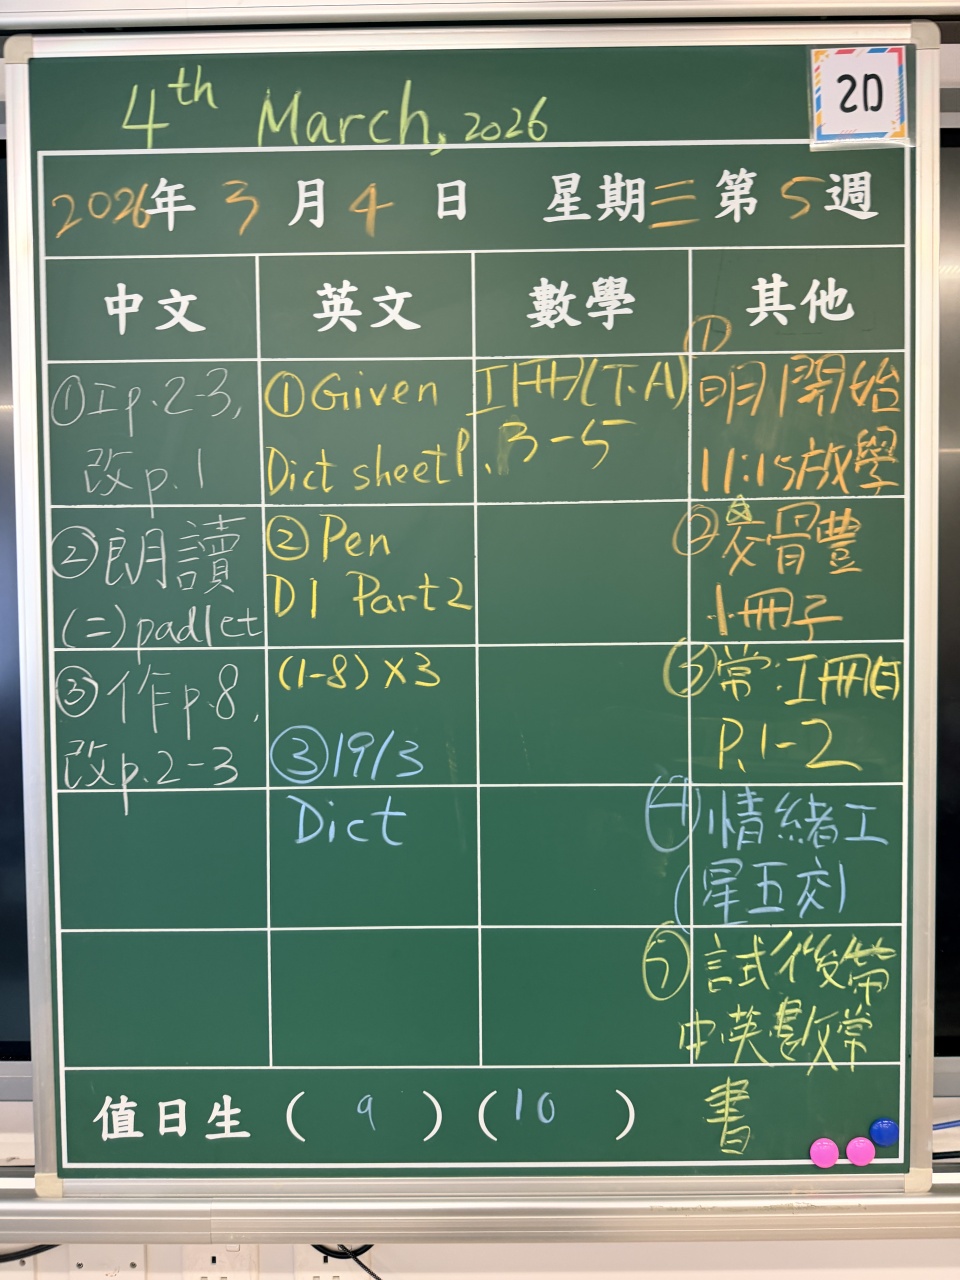 4th March, 2026
2D
2026年 3月 4日 星期三 第5週
中文
①工p.2-3,
改p.1
②朗讀
(二)padlet
③作p.8,
改p.2-3
英文
①Given
Dict sheet P.
②Pen
D1 Part2
(1-8)×3
③19/3
Dict
數學
工冊(下.A)
P.3-5
其他
①
明開始
11:15放學
②交體
小冊子
③常:工冊
P.1-2
④情緒工
(星五交)
⑤試後帶
中英數常
書
值日生 ( 9 ) ( 10 )